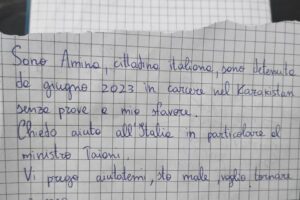 Sono Amina, cittadina italiana, sono detenuta
da giugno 2023 in carcere nel Kazakistan
senza prove a mio sfavore.
Chiedo aiuto all'Italia in particolare al
ministro Taiani.
Vi prego aiutatemi, sto male, voglio tornare